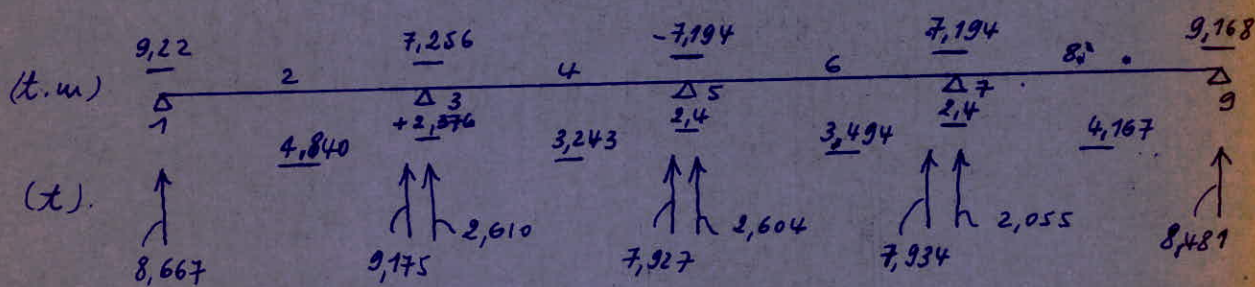 9,22 7,256 -7,194 7,194 9,168
(t.m) 2 4 6 8
1 3 5 7 9
+2,376 2,4 2,4
4,840 3,243 3,494 4,167
(t).
2,610 2,604 2,055
8,667 9,175 7,927 7,934 8,481